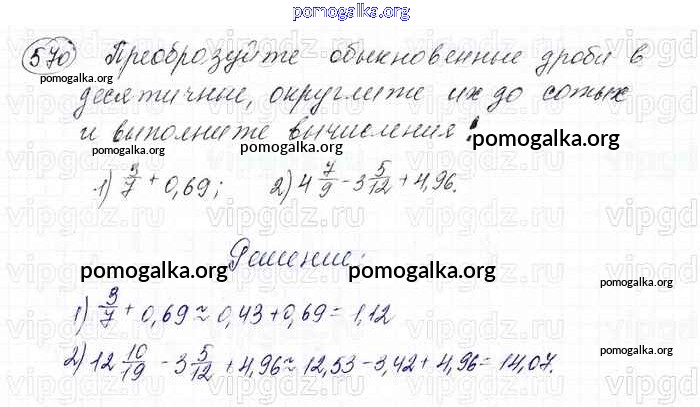 pomogalka.org
570 Преобразуйте обыкновенные дроби в
pomogalka.org pomogalka.org
десятичные, округлите их до сотых
и выполните вычисления:
pomogalka.org pomogalka.org
1) 3/7 + 0,69; 2) 4 7/9 - 3 5/12 + 4,96.
vipgdz.ru vipgdz.ru vipgdz.ru vipgdz.ru
Решение:
pomogalka.org pomogalka.org pomogalka.org
1) 3/7 + 0,69 ≈ 0,43 + 0,69 = 1,12
pomogalka.org
2) 12 10/19 - 3 5/12 + 4,96 ≈ 12,53 - 3,42 + 4,96 = 14,07.